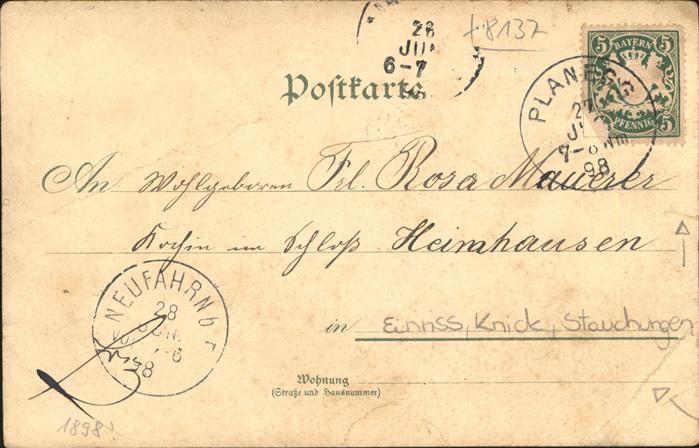 +8137
28
JUN
6-7
5 BAYERN 5
5 PFENNIG 5
Postkarte
PLANEGG
27
JUN
7-8 Nm.
98
An Wohlgeboren Frl. Rosa Mauerer
Kochin im Schloß Heimhausen
NEUFAHRN b F
28
JUN.
98
in Einriss, Knick, Stauchungen
Wohnung
(Straße und Hausnummer)
1898!